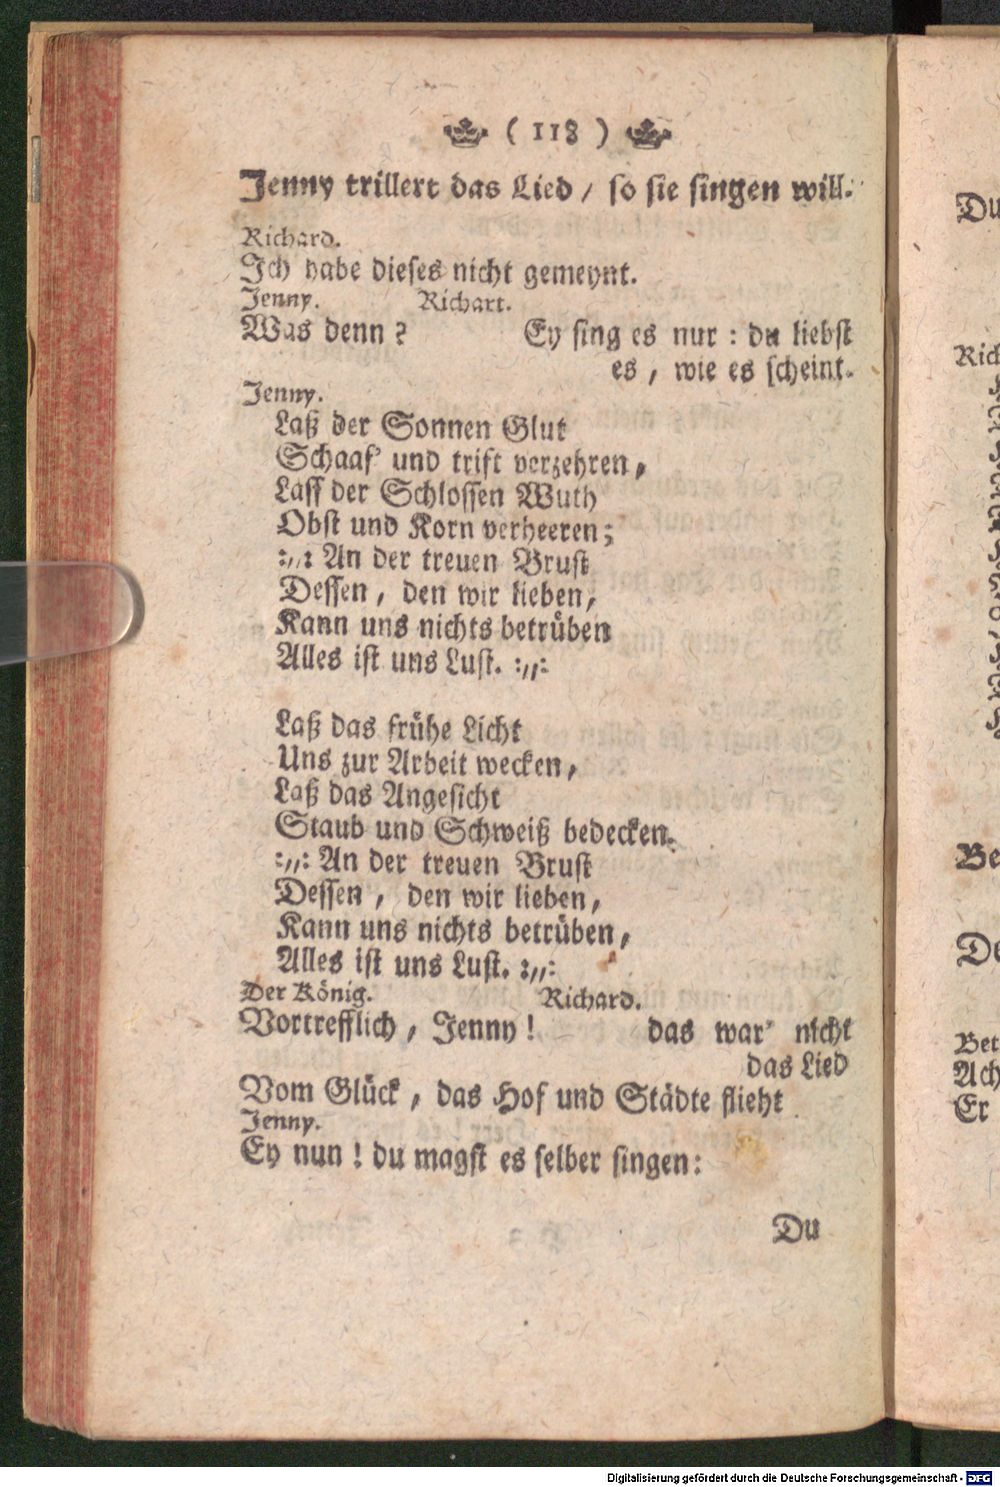 ( 118 )
Jenny trillert das Lied / so sie singen will.
Richard.
Ich habe dieses nicht gemeynt.
Jenny. Richart.
Was denn ? Ey sing es nur : du liebst
es , wie es scheint.
Jenny.
Laß der Sonnen Glut
Schaaf' und trift verzehren,
Lass der Schlossen Wuth
Obst und Korn verheeren;
:,,: An der treuen Brust
Dessen , den wir lieben,
Kann uns nichts betrüben
Alles ist uns Lust. :,,:
Laß das frühe Licht
Uns zur Arbeit wecken,
Laß das Angesicht
Staub und Schweiß bedecken.
:,,: An der treuen Brust
Dessen , den wir lieben,
Kann uns nichts betrüben,
Alles ist uns Lust. :,,:
Der König. Richard.
Vortrefflich , Jenny ! das war' nicht
das Lied
Vom Glück , das Hof und Städte flieht
Jenny.
Ey nun ! du magst es selber singen:
Du
Du
Rich
Be
De
Bet
Ach
Er
Digitalisierung gefördert durch die Deutsche Forschungsgemeinschaft - DFG